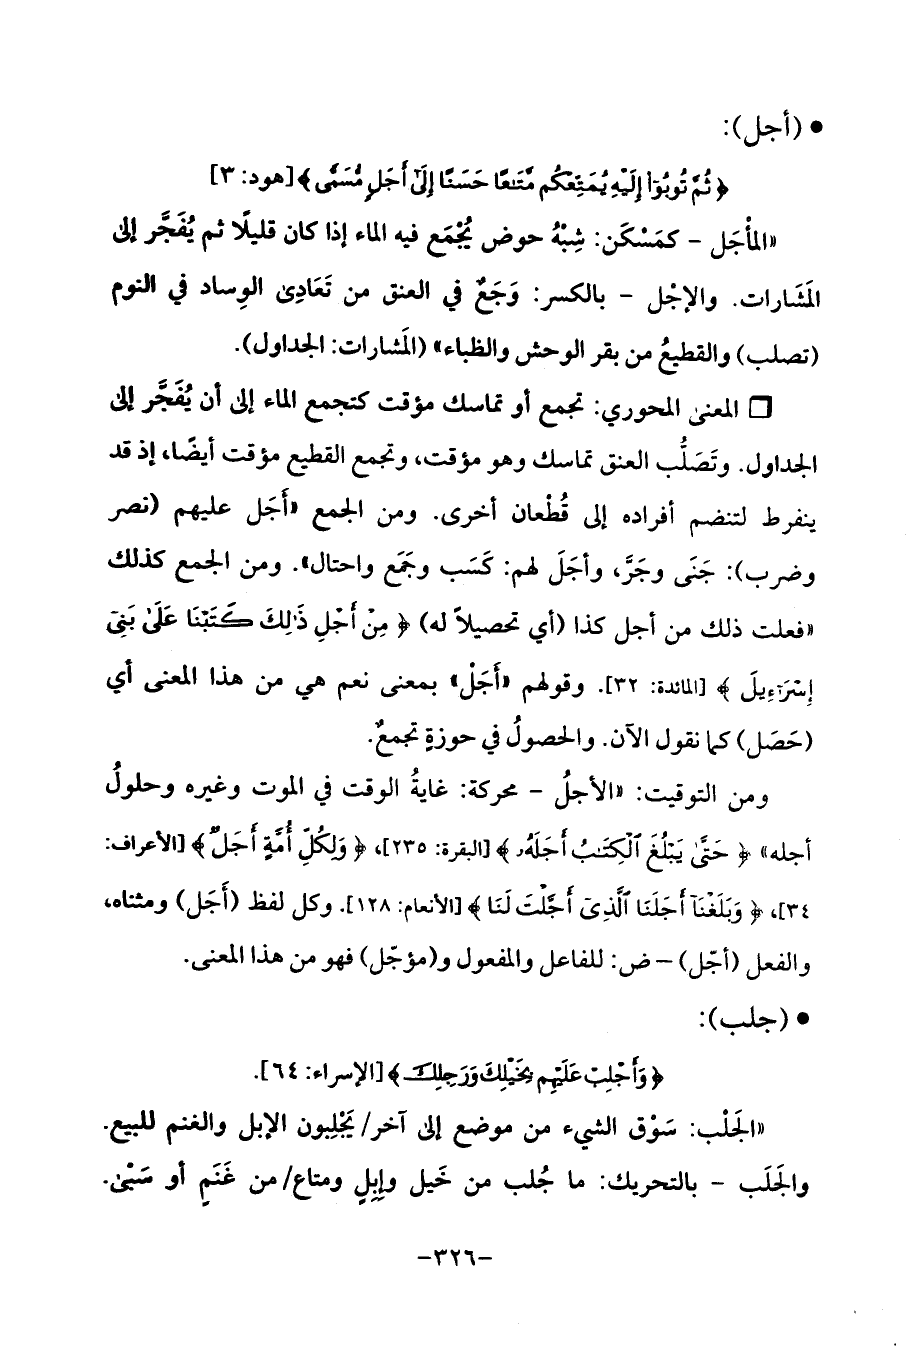 • (أجل):
﴿ ثُمَّ تُوبُوٓا۟ إِلَيْهِ يُمَتِّعْكُم مَّتَٰعًا حَسَنًا إِلَىٰٓ أَجَلٍ مُّسَمًّى ﴾ [هود: ٣]
«المأْجَل – كمَسْكَن: شِبْهُ حوض يُجْمَع فيه الماء إذا كان قليلًا ثم يُفَجَّر إلى
المَشَارات. والإجْل – بالكسر: وَجَعٌ في العنق من تَعَادِى الوِساد في النوم
(تصلب) والقطيعُ من بقر الوحش والظباء» (المَشارات: الجداول).
□ المعنى المحوري: تجمع أو تماسك مؤقت كتجمع الماء إلى أن يُفَجَّر إلى
الجداول. وتَصَلُّب العنق تماسك وهو مؤقت، وتجمع القطيع مؤقت أيضًا، إذ قد
ينفرط لتنضم أفراده إلى قُطْعان أخرى. ومن الجمع «أَجَل عليهم (نصر
وضرب): جَنَى وجَرَّ، وأجَلَ لهم: كَسَب وجَمَع واحتال». ومن الجمع كذلك
«فعلت ذلك من أجل كذا (أي تحصيلاً له) ﴿ مِنْ أَجْلِ ذَٰلِكَ كَتَبْنَا عَلَىٰ بَنِىٓ
إِسْرَٰٓءِيلَ ﴾ [المائدة: ٣٢]. وقولهم «أَجَلْ» بمعنى نعم هي من هذا المعنى أي
(حَصَل) كما نقول الآن. والحصولُ في حوزةٍ تجمعٌ.
ومن التوقيت: «الأجلُ – محركة: غايةُ الوقت في الموت وغيره وحلولُ
أجله» ﴿ حَتَّىٰ يَبْلُغَ ٱلْكِتَٰبُ أَجَلَهُۥ ﴾ [البقرة: ٢٣٥]، ﴿ وَلِكُلِّ أُمَّةٍ أَجَلٌ ﴾ [الأعراف:
٣٤]، ﴿ وَبَلَغْنَآ أَجَلَنَا ٱلَّذِىٓ أَجَّلْتَ لَنَا ﴾ [الأنعام: ١٢٨]. وكل لفظ (أَجَل) ومثناه،
والفعل (أجّل) – ض: للفاعل والمفعول و(مؤجّل) فهو من هذا المعنى.
• (جلب):
﴿ وَأَجْلِبْ عَلَيْهِم بِخَيْلِكَ وَرَجِلِكَ ﴾ [الإسراء: ٦٤].
«الجَلْب: سَوْق الشيء من موضع إلى آخر/ يَجْلِبون الإبل والغنم للبيع.
والجَلَب – بالتحريك: ما جُلب من خَيل وإبِلٍ ومتاع/ من غَنَمٍ أو سَبْىٍ.
-٣٢٦-